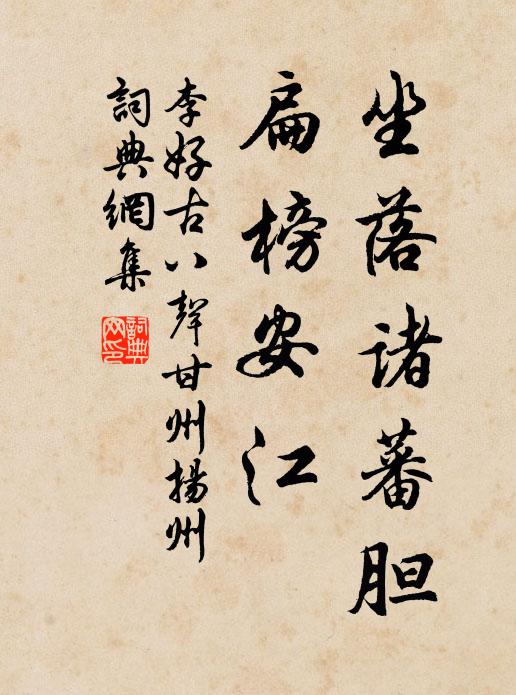 坐落诸蕃胆
扁榜安江
李好古八声甘州扬州
词典網集
詞典網印